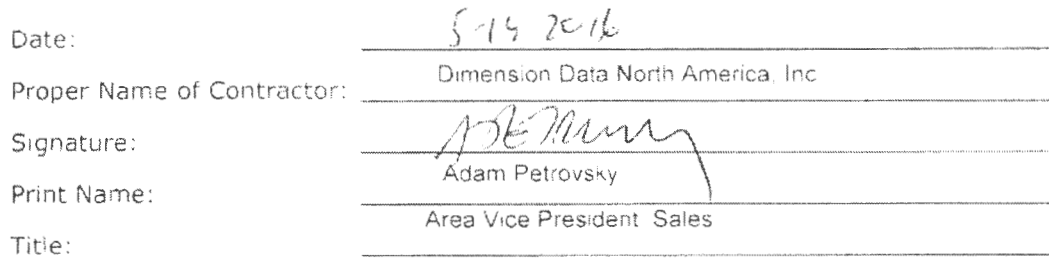 Date: 5-19 2016
Proper Name of Contractor: Dimension Data North America, Inc
Signature:
Print Name: Adam Petrovsky
Title: Area Vice President Sales